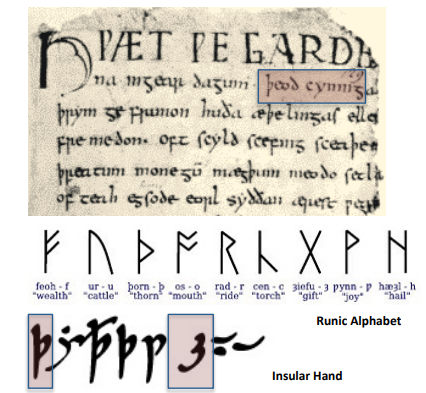 HǷÆT ǷE GARDE
na ingear dagum. þeod cyninga
þrym ge frunon huða æþelingas elle
fremedon. oft scyld scefing sceaþe
þreatum monegū mægþum meodo setla
of teah egsode eorl syððan ærest
ᚠ ᚢ ᚦ ᚩ ᚱ ᚳ ᚷ ᚹ ᚻ
feoh - f ur - u þorn - þ os - o rad - r cen - c ȝiefu - ȝ ƿynn - ƿ hæȝl - h
"wealth" "cattle" "thorn" "mouth" "ride" "torch" "gift" "joy" "hail"
Runic Alphabet
Insular Hand